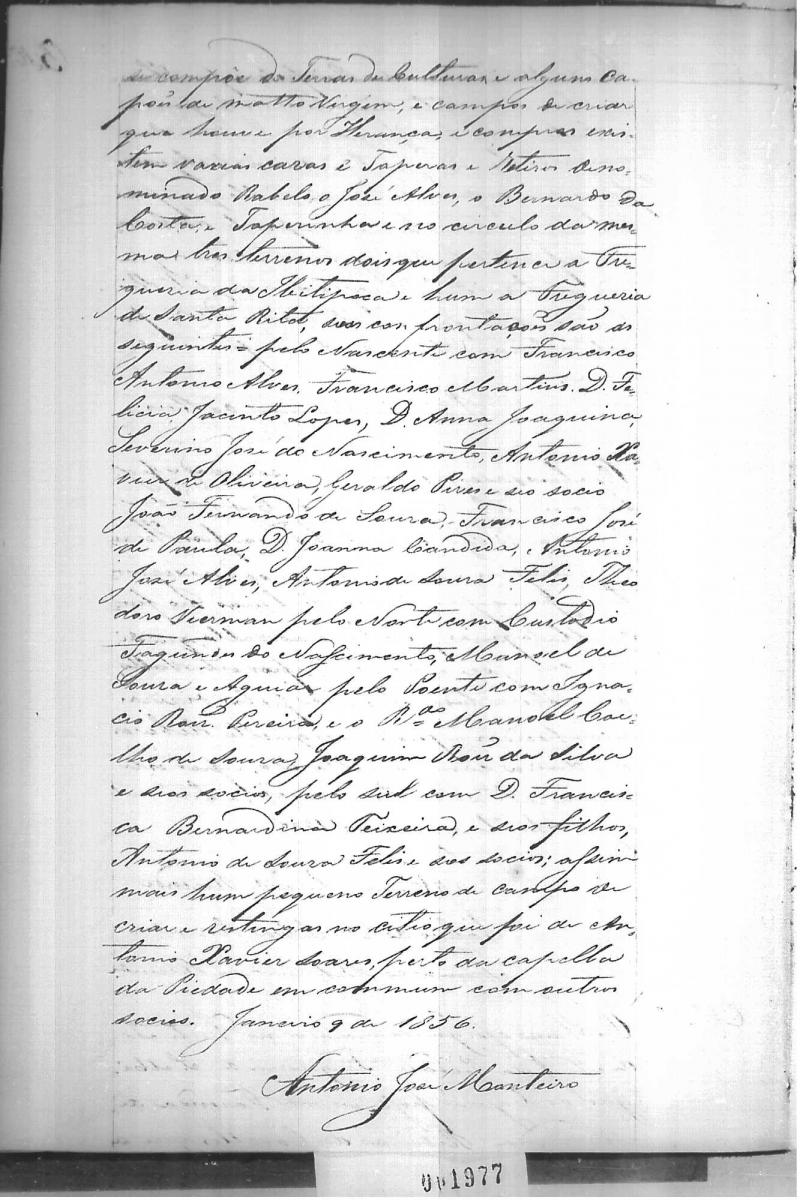 se compõe de Terras de Culturas e alguns Ca-
pões de matto Virgem, e campos de criar
que houve por Herança, e compras exis-
tem varias cazas e Taperas e Retiros deno-
minado Rabelo, o José Alves, o Bernardo da
Costa, e Taperinha e no circulo da mes-
ma tres terrenos dois que pertence a Fre-
gueria da Ibitipoca e hum a Fregueria
de Santa Rita, suas confrontações são as
seguintes = pelo Nascente com Francisco
Antonio Alves, Francisco Martins. D. Fe-
licia, Jacinto Lopes, D. Anna Joaquina,
Severino José do Nascimento, Antonio Xa-
vier de Oliveira, Geraldo Pires e seo socio
João Fernando de Souza, Francisco José
de Paula, D. Joanna Candida, Antonio
José Alves, Antonio de Souza Felis, Theo
doro pelo Norte com Custodio
Fagundes do Nascimento, Manoel de
Souza e Aguiar pelo Poente com Igna-
cio Roiz. Pereira, e o Manoel Coe-
lho de Souza, Joaquim Roiz da Silva
e seos socios, pelo sul com D. Francis-
ca Bernardina Teixeira, e seos filhos,
Antonio de Souza Felis e seos socios; assim
mais hum pequeno Terreno de campo de
criar e restingas no citio que foi de An-
tonio Xavier Soares, perto da capella
da Piedade em commum com outros
socios. Janeiro 9 de 1856.
Antonio José Monteiro
001977